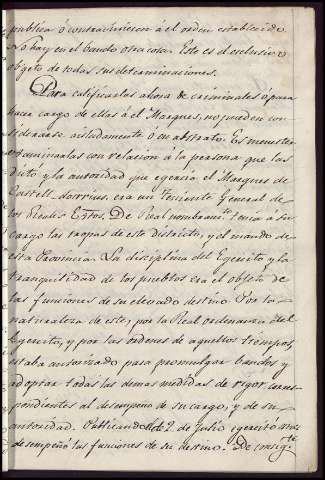 publica ó contravinieron á el orden establecido
No hay en el bando otra cosa. Este es el esclusivo
objeto de todas sus determinaciones.
Para calificarlas ahora de criminales ó para
hacer cargo de ellas á el Marques, no pueden con-
siderarse aisladamente ó en abstrato. Es menester
examinarlas con relacion á la persona que las
dictó y la autoridad que egercia el Marques de
Castell-dosrrius. era un Teniente General de
los Reales Extos. De Real nombramto. tenia á su
cargo las tropas de este distrito, y el mando de
esta Provincia. La disciplina del Egercito, y la
tranquilidad de los pueblos era el objeto de
las funciones de su elevado destino. Por la
naturaleza de este, por la Real ordenanza del
Egercito, y por las ordenes de aquellos tiempos,
estaba autorizado para promulgar bandos y
adoptar todas las demas medidas de rigor corres-
pondientes al desempeño de su cargo, y de su
autoridad. Publicando el de 2 de Julio egercitó
desempeñó las funciones de su destino. De consigte.